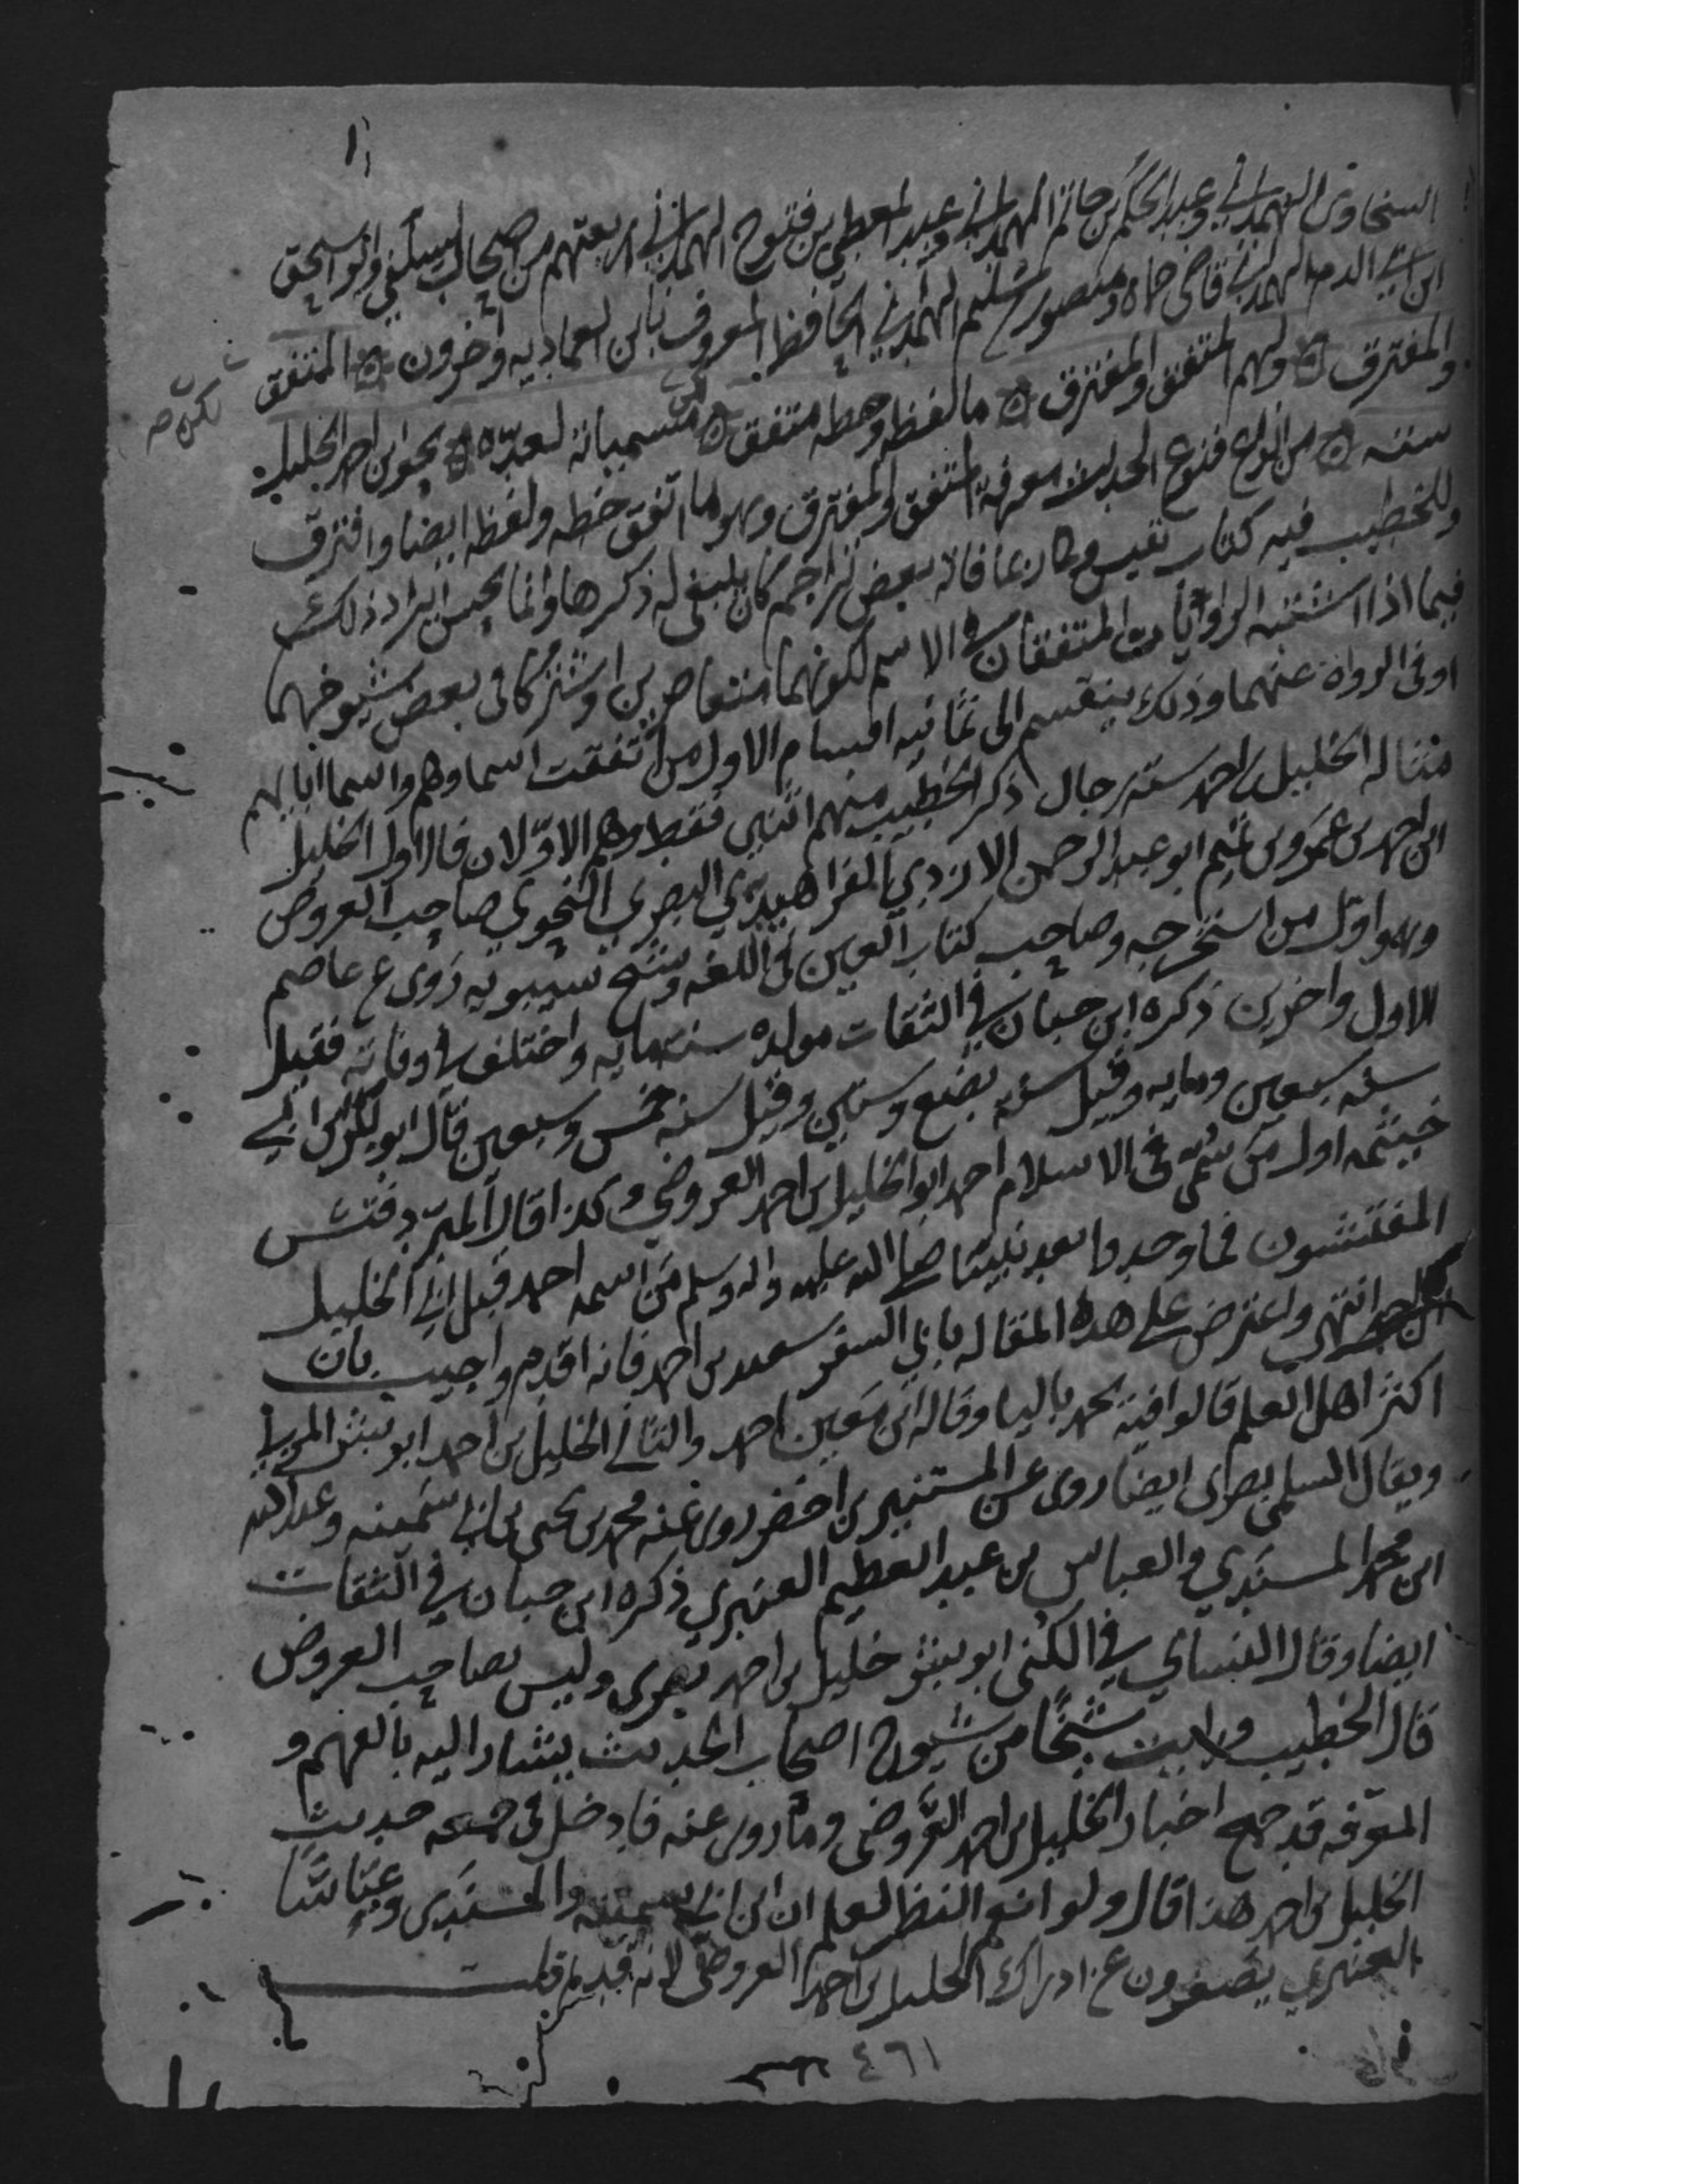 السخاوي الهمداني وعبد الحكم بن حاتم الهمداني وعبد المعطي بن فتوح الهمداني اربعتهم من صحاب السلفي وابو اسحق
ابن ابي الدم الهمداني قاضي حماه ومنصور بن سليم الهمداني الحافظ المعروف بابن العماديه واخرون المتفق
والمفترق ولهم المتفق والمفترق ما لفظه وخطه متفق لكن مسمياته لعده نحو ابن احمد الخليل
لكن صح
سته من انواع فنوع الحديث معرفة المتفق والمفترق وهو ما اتفق خطه ولفظه ايضا وافترق
وللخطيب فيه كتاب نفيس وكان عافاته بعض تراجم كان ينبغي له ذكرها وانما يحسن ايراد ذلك
فيما اذا اشتبه الراويان المتفقان في الاسم لكونهما متعاصرين او اشتركا في بعض شيوخهما
او في الرواة عنهما وذلك ينقسم الى ثمانيه اقسام الاول من اتفقت اسماوهم واسما ابايهم
مثاله الخليل بن احمد سته رجال ذكر الخطيب منهم اثنين فقط وهم الاولان فالاول الخليل
ابن احمد بن عمرو بن تميم ابو عبد الرحمن الازدي الفراهيدي البصري النحوي صاحب العروض
وهو اول من استخرجه وصاحب كتاب العين في اللغه وشيخ سيبويه روى عن عاصم
الاول واخرين ذكره ابن حبان في الثقات مولده سنة مايه واختلف في وفاته فقيل
سنه سبعين ومايه وقيل سنه بضع وستين وقيل سنه خمس وسبعين قال ابو بكر بن ابي
خيثمه اول من سمي في الاسلام احمد ابو الخليل بن احمد العروضي وكذا قال المبرد فتش
المفتشون فما وجدوا بعد نبينا صلى الله عليه واله وسلم من اسمه احمد قبل ابي الخليل
انتهى واعترض على هذه المقاله بابي السفر سعيد بن احمد فانه اقدم واجيب بان
اكثر اهل العلم قالوا فيه يحمد باليا وقاله ابن معين احمد والثاني الخليل بن احمد ابو بشر المزني
ويقال السلمي بصري ايضا روى عن المستنير بن اخضر روى عنه محمد بن يحيى بن ابي سمينه وعبد الله
ابن محمد المسندي والعباس بن عبد العظيم العنبري ذكره ابن حبان في الثقات
ايضا وقال النسائي في الكنى ابو بشر خليل بن احمد بصري وليس بصاحب العروض
قال الخطيب ورايت شيخا من شيوخ اصحاب الحديث يشار اليه بالفهم و
المعرفه قد جمع اخبار الخليل بن احمد العروضي وما روى عنه فادخل في جمعه حديث
الخليل بن احمد هذا قال ولو انعم النظر لعلم ان ابن ابي سمينه والمسندي وعباسا
العنبري يصغرون عن ادراك الخليل بن احمد العروضي لانه قديم قلت
٤٦١